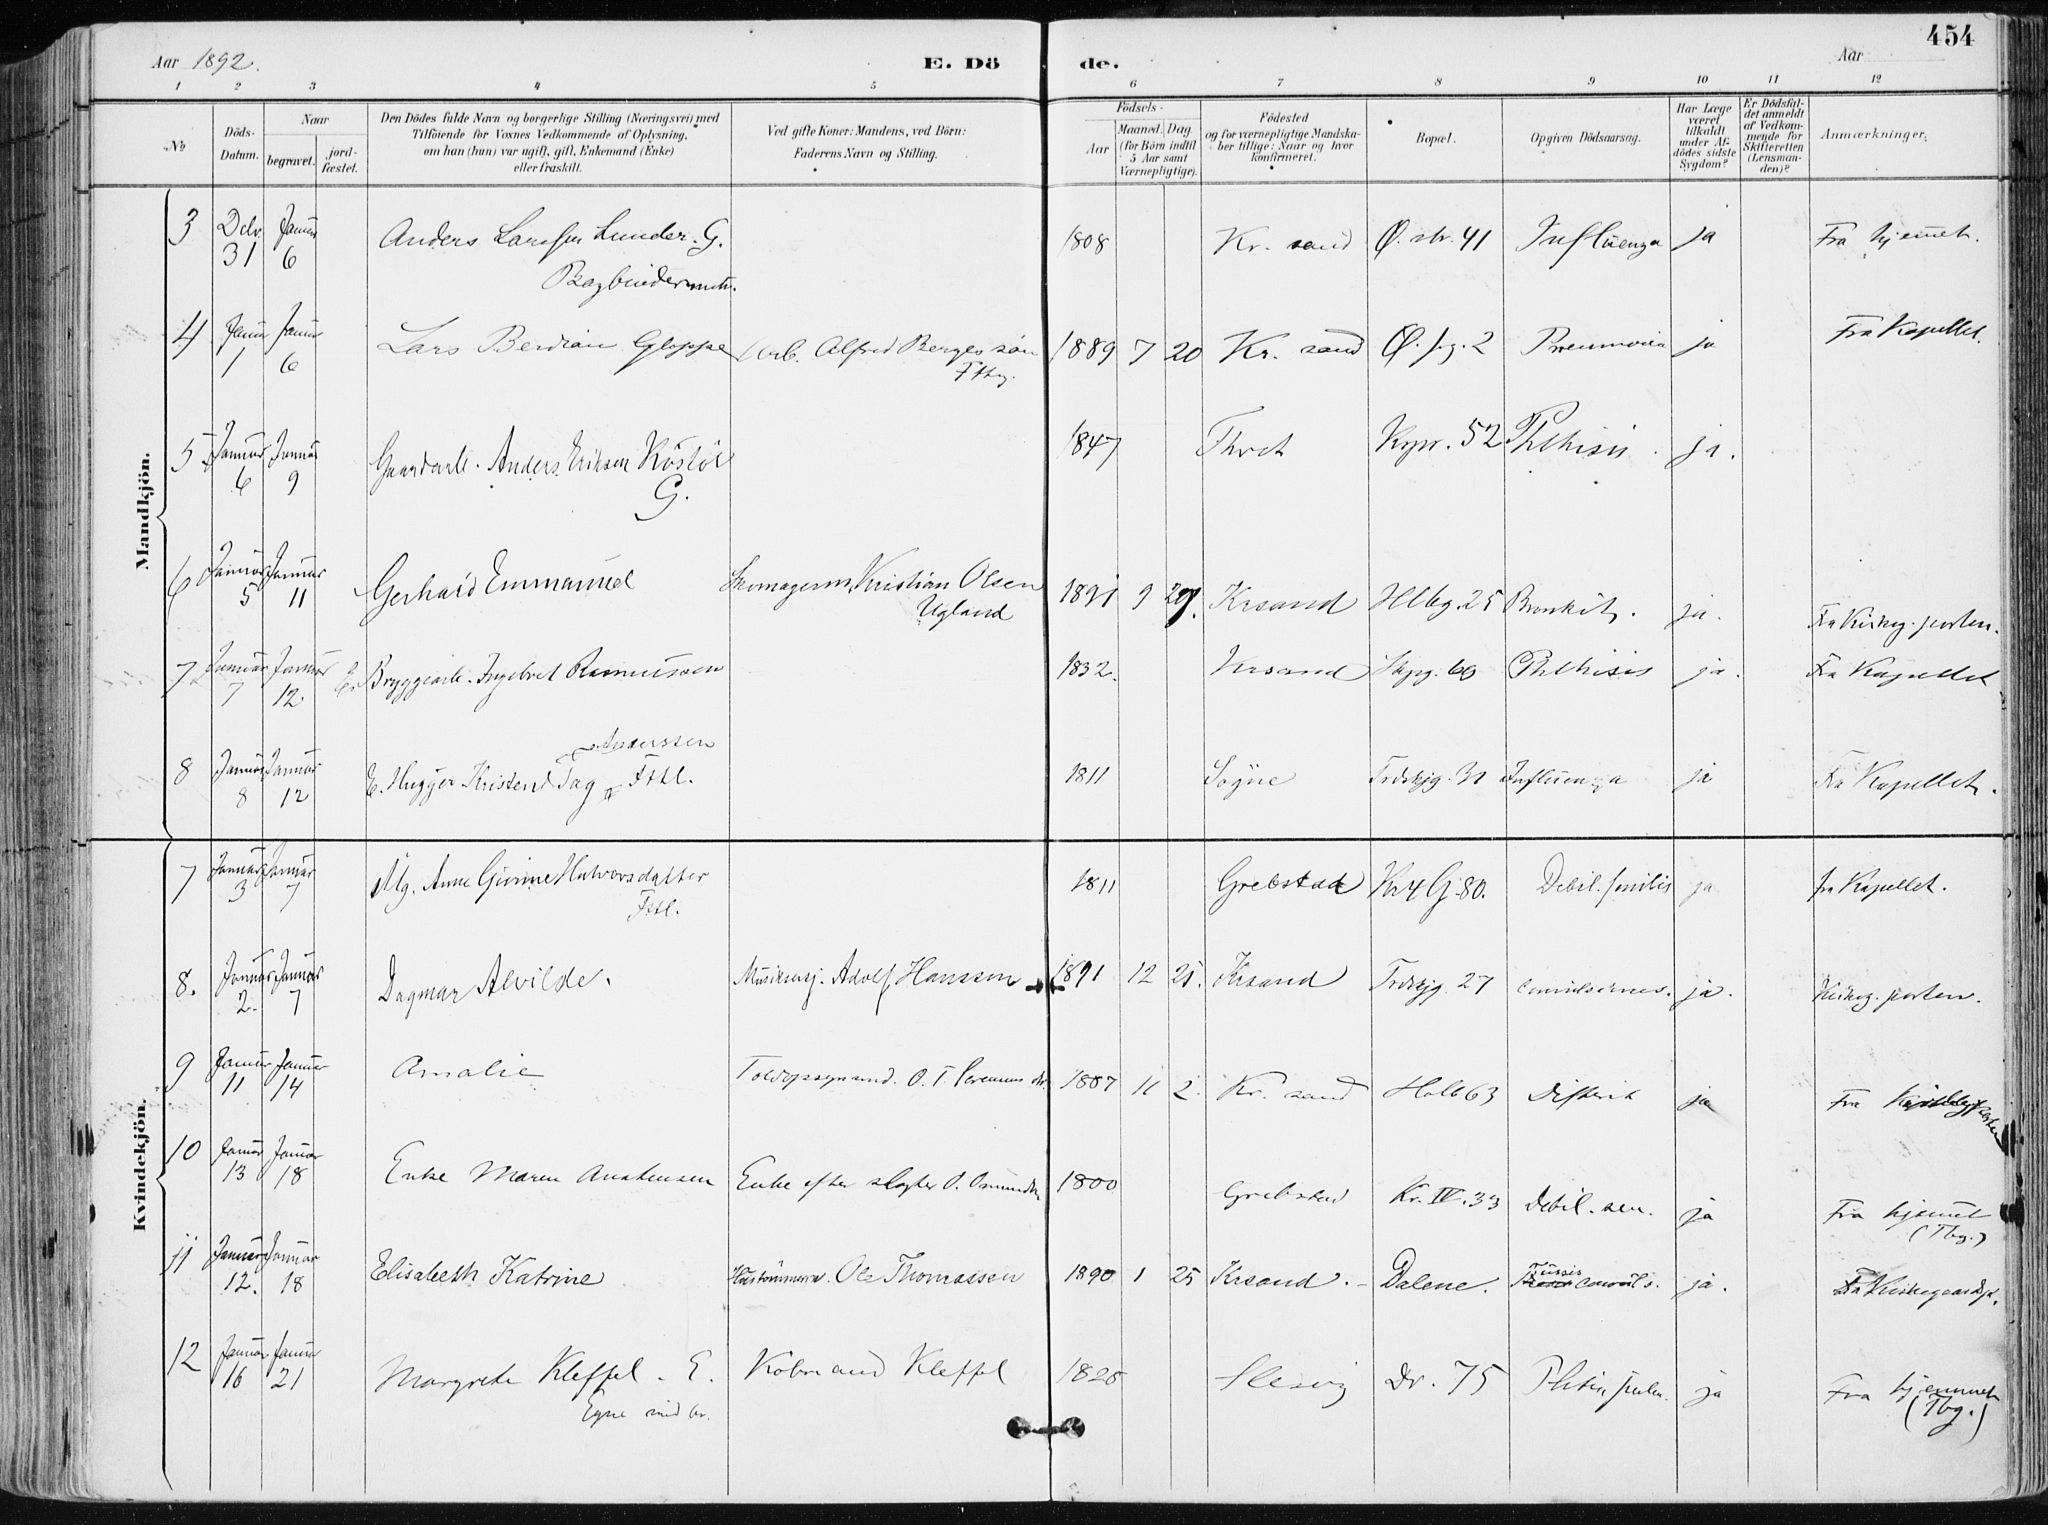 Aar 1892.
E. Dö de.
Aar
454
1 2 3 4 5 6 7 8 9 10 11 12
№
Döds-Datum.
Naar
begravet.
jord-fæstet.
Den Dödes fulde Navn og borgerlige Stilling (Næringsvei) med
Tilföiende for Voxnes Vedkommende af Oplysning,
om han (hun) var ugift, gift, Enkemand (Enke)
eller fraskilt.
Ved gifte Koner: Mandens, ved Börn:
Faderens Navn og Stilling.
Födsels-
Aar
Maaned. Dag.
(for Börn indtil
5 Aar samt
Værnepligtige).
Födested
og for værnepligtige Mandska-
ber tillige: Naar og hvor
konfirmeret.
Bopæl.
Opgiven Dödsaarsag.
Har Læge
været
tilkaldt
under Af-
dödes sidste
Sygdom?
Er Dödsfal-
det anmeldt
af Vedkom-
mende for
Skifteretten
(Lensman-
den)?
Anmærkninger.
Mandkjön.
3 Dcbr. 31 Januar 6 Anders Larssen Lunder. G. 1808 Kr. sand Ø. str. 41 Influenza ja Fra hjemmet.
Bogbinderm.
4 Januar 1 Januar 6 Lars Berdian Gloppe Arb. Alfred Bergessön 1889 7 20 Kr. sand Ø. 2 Pneumonia ja Fra Kapellet.
5 Januar 6 Januar 9 Gaardarb. Anders Eriksen 1847 52 Phthisis. ja.
G.
6 Januar 5 Januar 11 Gerhard Emmanuel Skomagerm. Kristian Olsen 1891 9 29. Krsand Hlbg. 25 Bronkit. ja. Fra Kirkeg. porten.
Ugland
7 Januar 7 Januar 12. Bryggearb. Ingebret Rasmussen 1832. Krsand 60 Phthisis ja. Fra Kapellet.
Anderssen
8 Januar 8 Januar 12 E. Hugger Kristen Dag Fttl. 1811 Sogne Trdskjg. 31 Influenza ja Fra Kapellet.
Kvindekjön.
7 Januar 3 Januar 7 Anne Gurine Halvorsdatter 1811 Grebstad Kr 4 G 80. Debil. senilis ja fra Kapellet.
Fttl.
8. Januar 2. Januar 7 Dagmar Alvilde. Adolf Hanssen 1891 12 21. Krsand Trdskjg. 27 ja. Kirkeg. porten.
9 Januar 11 Januar 14 Amalie O. T. 1887 11 2. Kr. sand Holb 63 Difterit ja Fra
10 Januar 13 Januar 18 Enke Maren Enke efter slagter O. Osmundsen 1800 Grebstad Kr. IV. 33 Debil. sen. ja Fra hjemmet
(Tbg.)
11 Januar 12. Januar 18 Elisabeth Katrine Hustömmerm. Ole Thomassen 1890 1 25 Krsand. Dalene. Tussis convuls. ja. Fra Kirkegaardsp.
12 Januar 16 Januar 21 Margrete Kleffel. E. Köbmand Kleffel 1825 Slesvig Dr. 75 ja Fra hjemmet
(Tbg.)